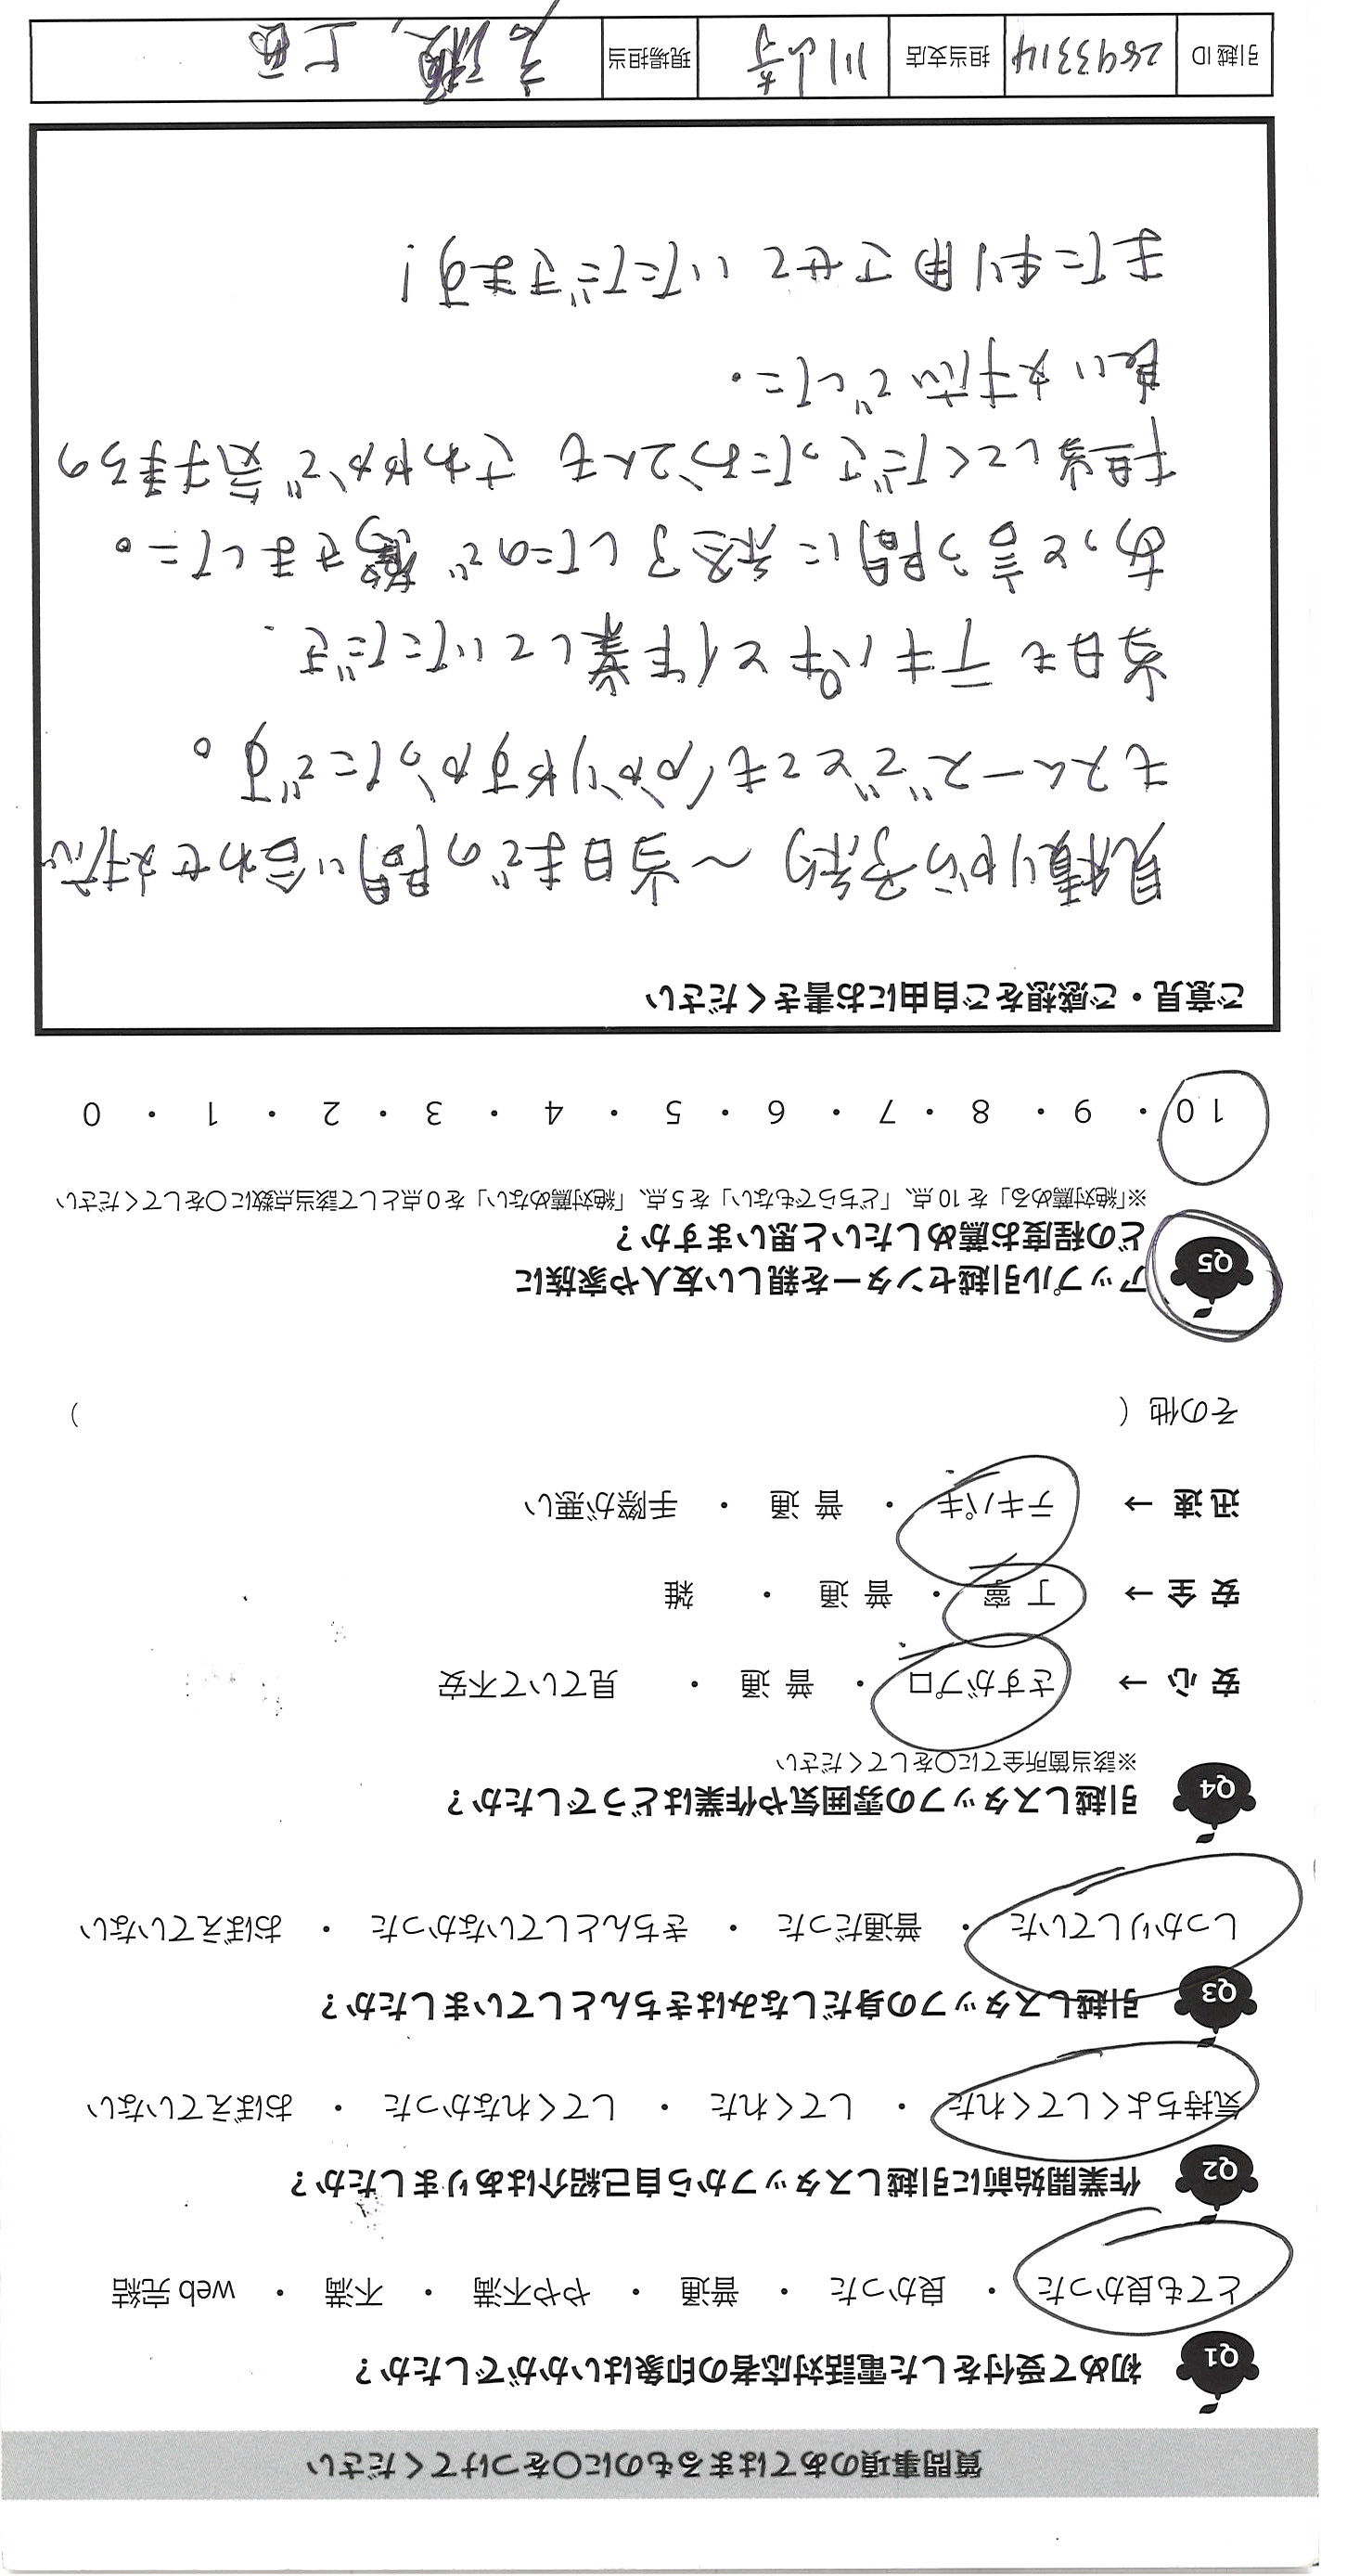 質問事項のあてはまるものに〇をつけてください
Q1 初めて受付をした電話対応者の印象はいかがでしたか？
とても良かった ・ 良かった ・ 普通 ・ やや不満 ・ 不満 ・ web 完結
Q2 作業開始前に引越しスタッフから自己紹介はありましたか？
気持ちよくしてくれた ・ してくれた ・ してくれなかった ・ おぼえていない
Q3 引越しスタッフの身だしなみはきちんとしていましたか？
しっかりしていた ・ 普通だった ・ きちんとしていなかった ・ おぼえていない
Q4 引越しスタッフの雰囲気や作業はどうでしたか？
※該当箇所全てに〇をしてください
安心 → さすがプロ ・ 普通 ・ 見ていて不安
安全 → 丁寧 ・ 普通 ・ 雑
迅速 → テキパキ ・ 普通 ・ 手際が悪い
その他 （ ）
Q5 アップル引越センターを親しい友人や家族に
どの程度お薦めしたいと思いますか？
※「絶対薦める」を10点、「どちらでもない」を5点、「絶対薦めない」を0点として該当点数に〇をしてください
10 ・ 9 ・ 8 ・ 7 ・ 6 ・ 5 ・ 4 ・ 3 ・ 2 ・ 1 ・ 0
ご意見・ご感想をご自由にお書きください
見積りから予約 〜 当日までの問い合わせ対応
もスムーズでとても分かりやすかったです。
当日もテキパキと作業していただき、
あっと言う間に終了したので驚きました。
担当してくださったお2人もさわやかで気持ちの
良い対応でした。
また利用させていただきます！
引越ID 2693314 担当支店 現場担当